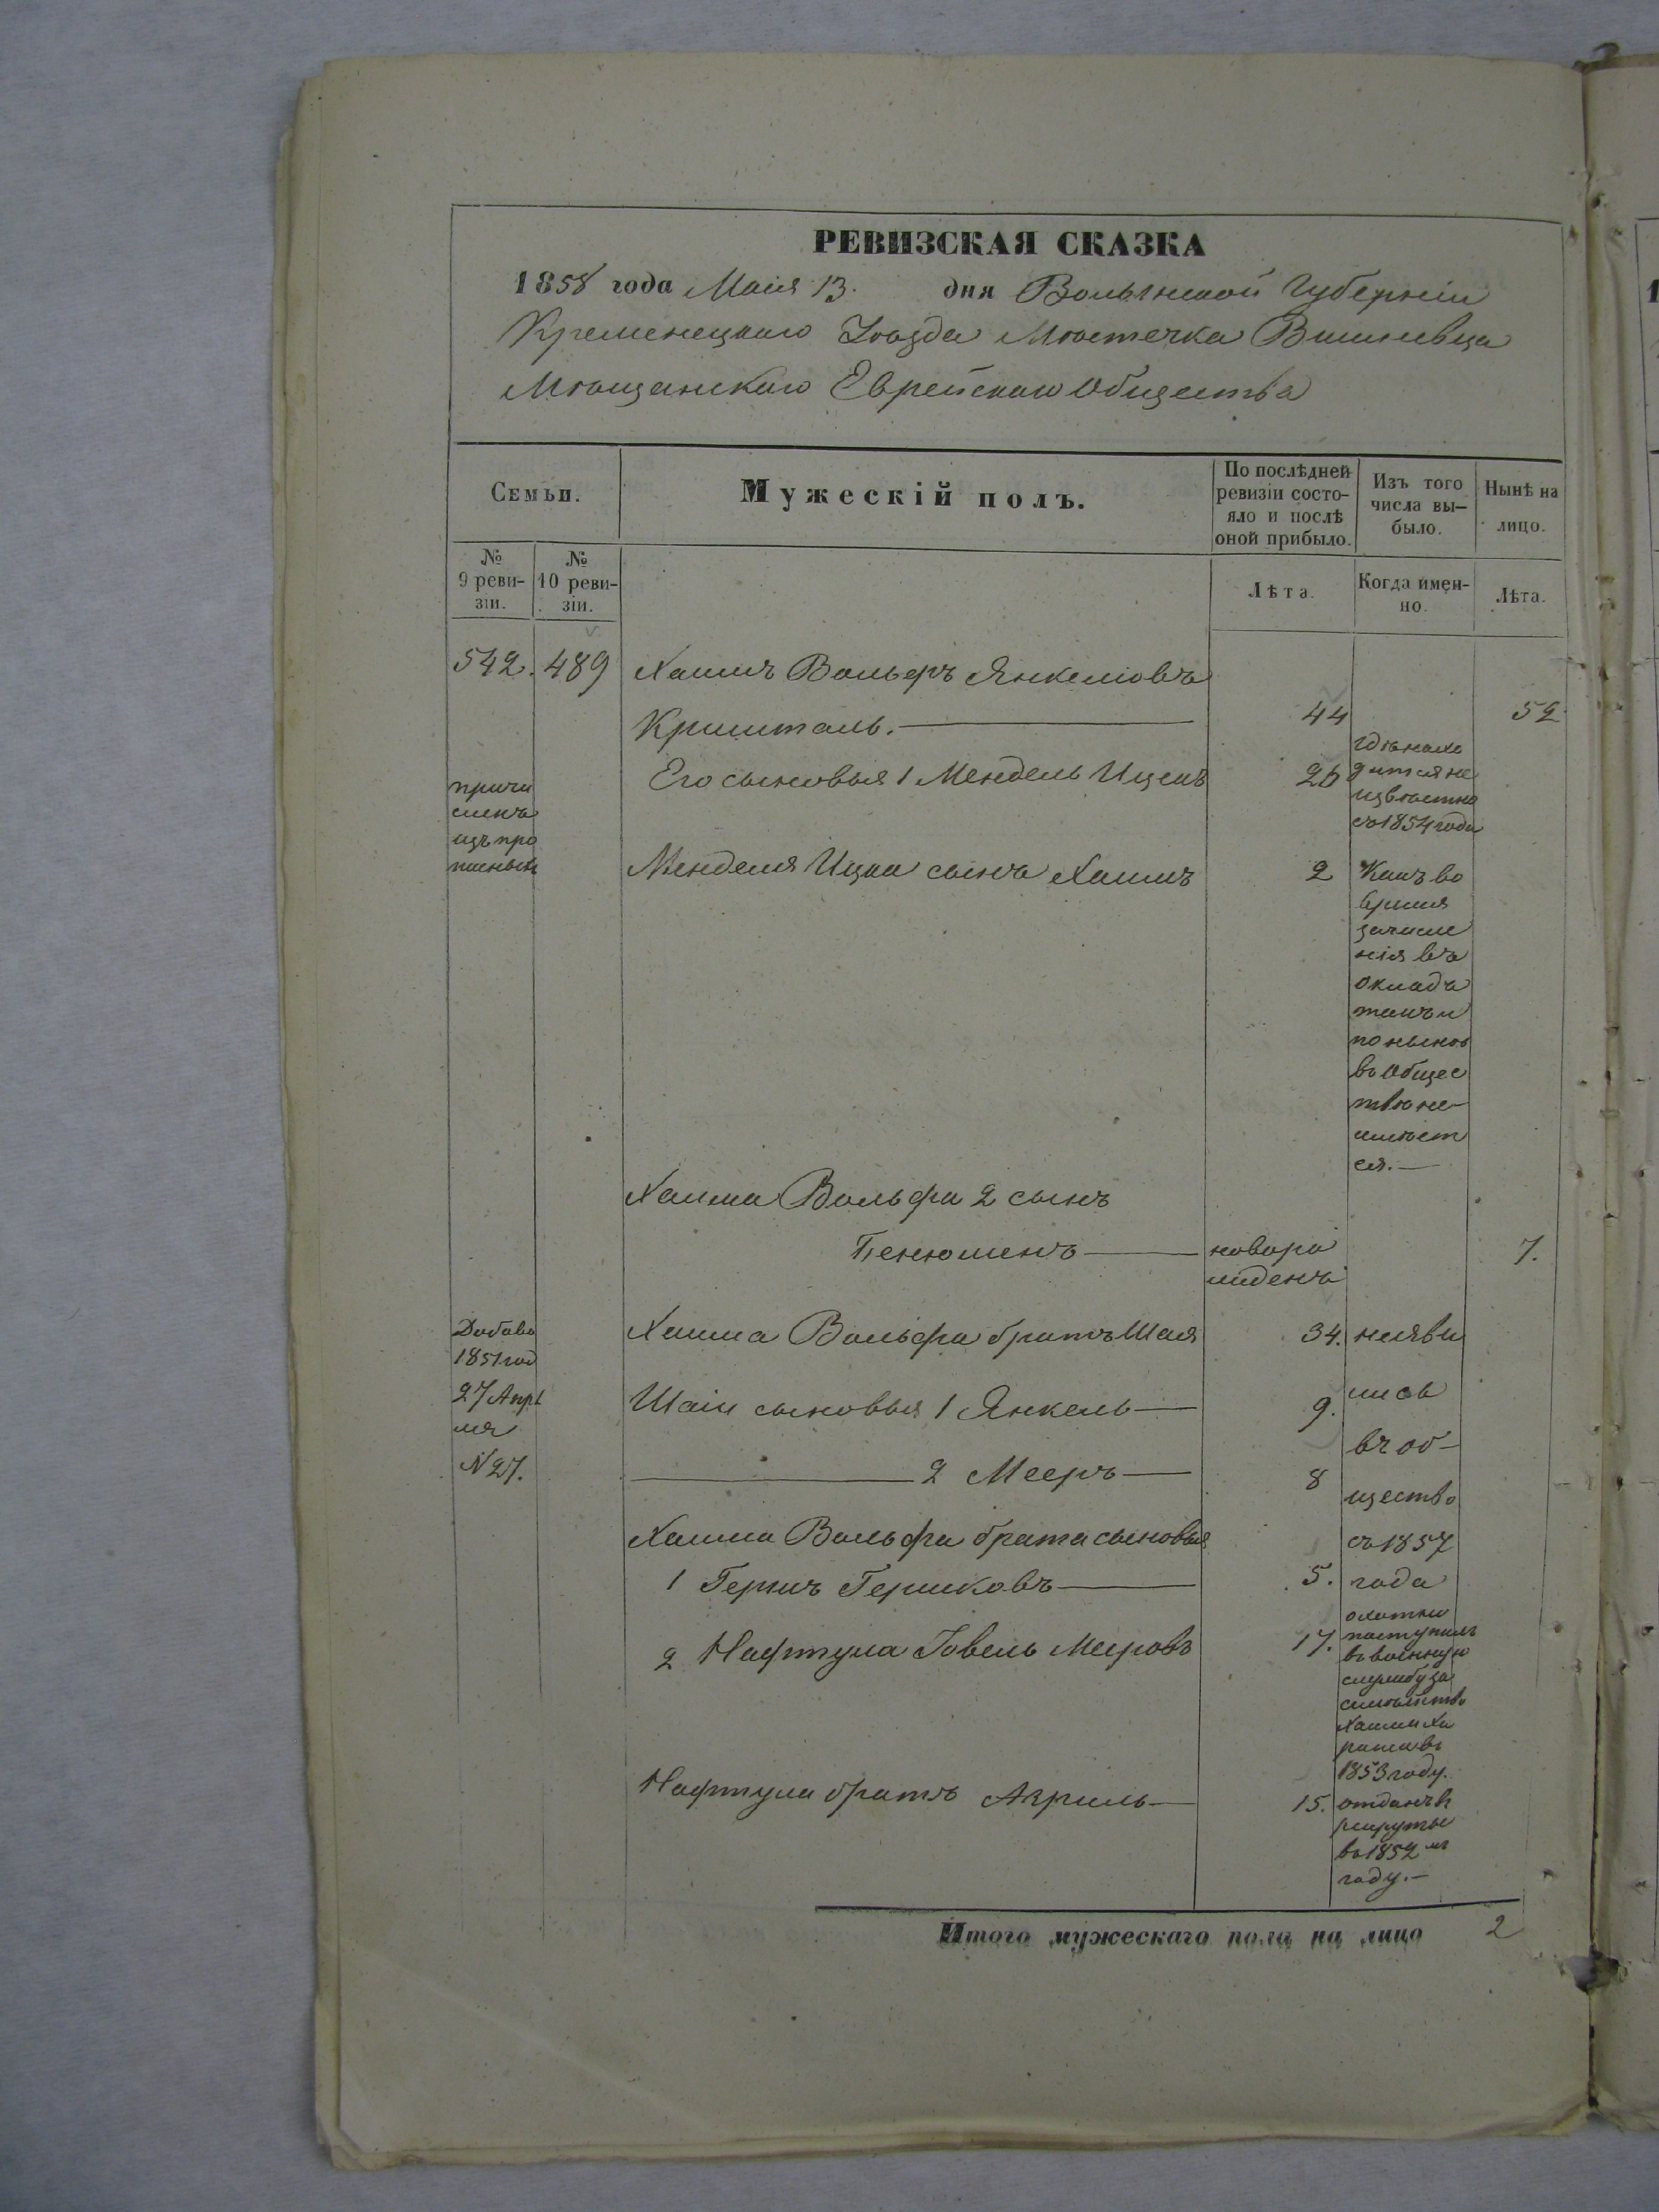 РЕВИЗСКАЯ СКАЗКА
1858 года Маія 13. дня Волынской Губерніи
Кременецкаго Уѣзда Мѣстечка Вишневца
Мѣщанскаго Еврейскаго Общества
Семьи.
Мужескій полъ.
По послѣдней
ревизіи состо-
яло и послѣ
оной прибыло.
Изъ того
числа вы-
было.
Нынѣ на
лицо.
№
9 реви-
зіи.
№
10 реви-
зіи.
Лѣта.
Когда имен-
но.
Лѣта.
542. 489 Хаимъ Вольфъ Янкеліовъ
Кришталь. 44 52
Его сыновья 1 Мендель Ицекъ 26
гдѣ нахо
дится не
извѣстно
съ 1854 года
причи
сленъ
изъ про
писныхъ
Менделя Ицка сынъ Хаимъ 2
Какъ во
время
зачисле
нія въ
окладъ
такъ и
по нынѣ
въ Общес
твѣ не
имѣет
ся.
Хаима Вольфа 2 сынъ
Бенюменъ новоро 7.
жденъ
Добаво
1851 год
27 Апрѣ
ля
N 27.
Хаима Вольфа братъ Шая 34. неяви
Шаіи сыновья 1 Янкель 9. лись
въ об-
2 Мееръ 8
щество
Хаима Вольфа брата сыновья съ 1857
1 Гершъ Гершковъ 5. года
2 Нафтула Іовель Меировъ 17.
охотно
поступилъ
въ военную
службу за
семѣйство
Хаима
1853 году.
Нафтулы братъ Авриль 15. отданъ в
рекруты
въ 1852 мъ
году.
Итого мужескаго пола на лицо 2